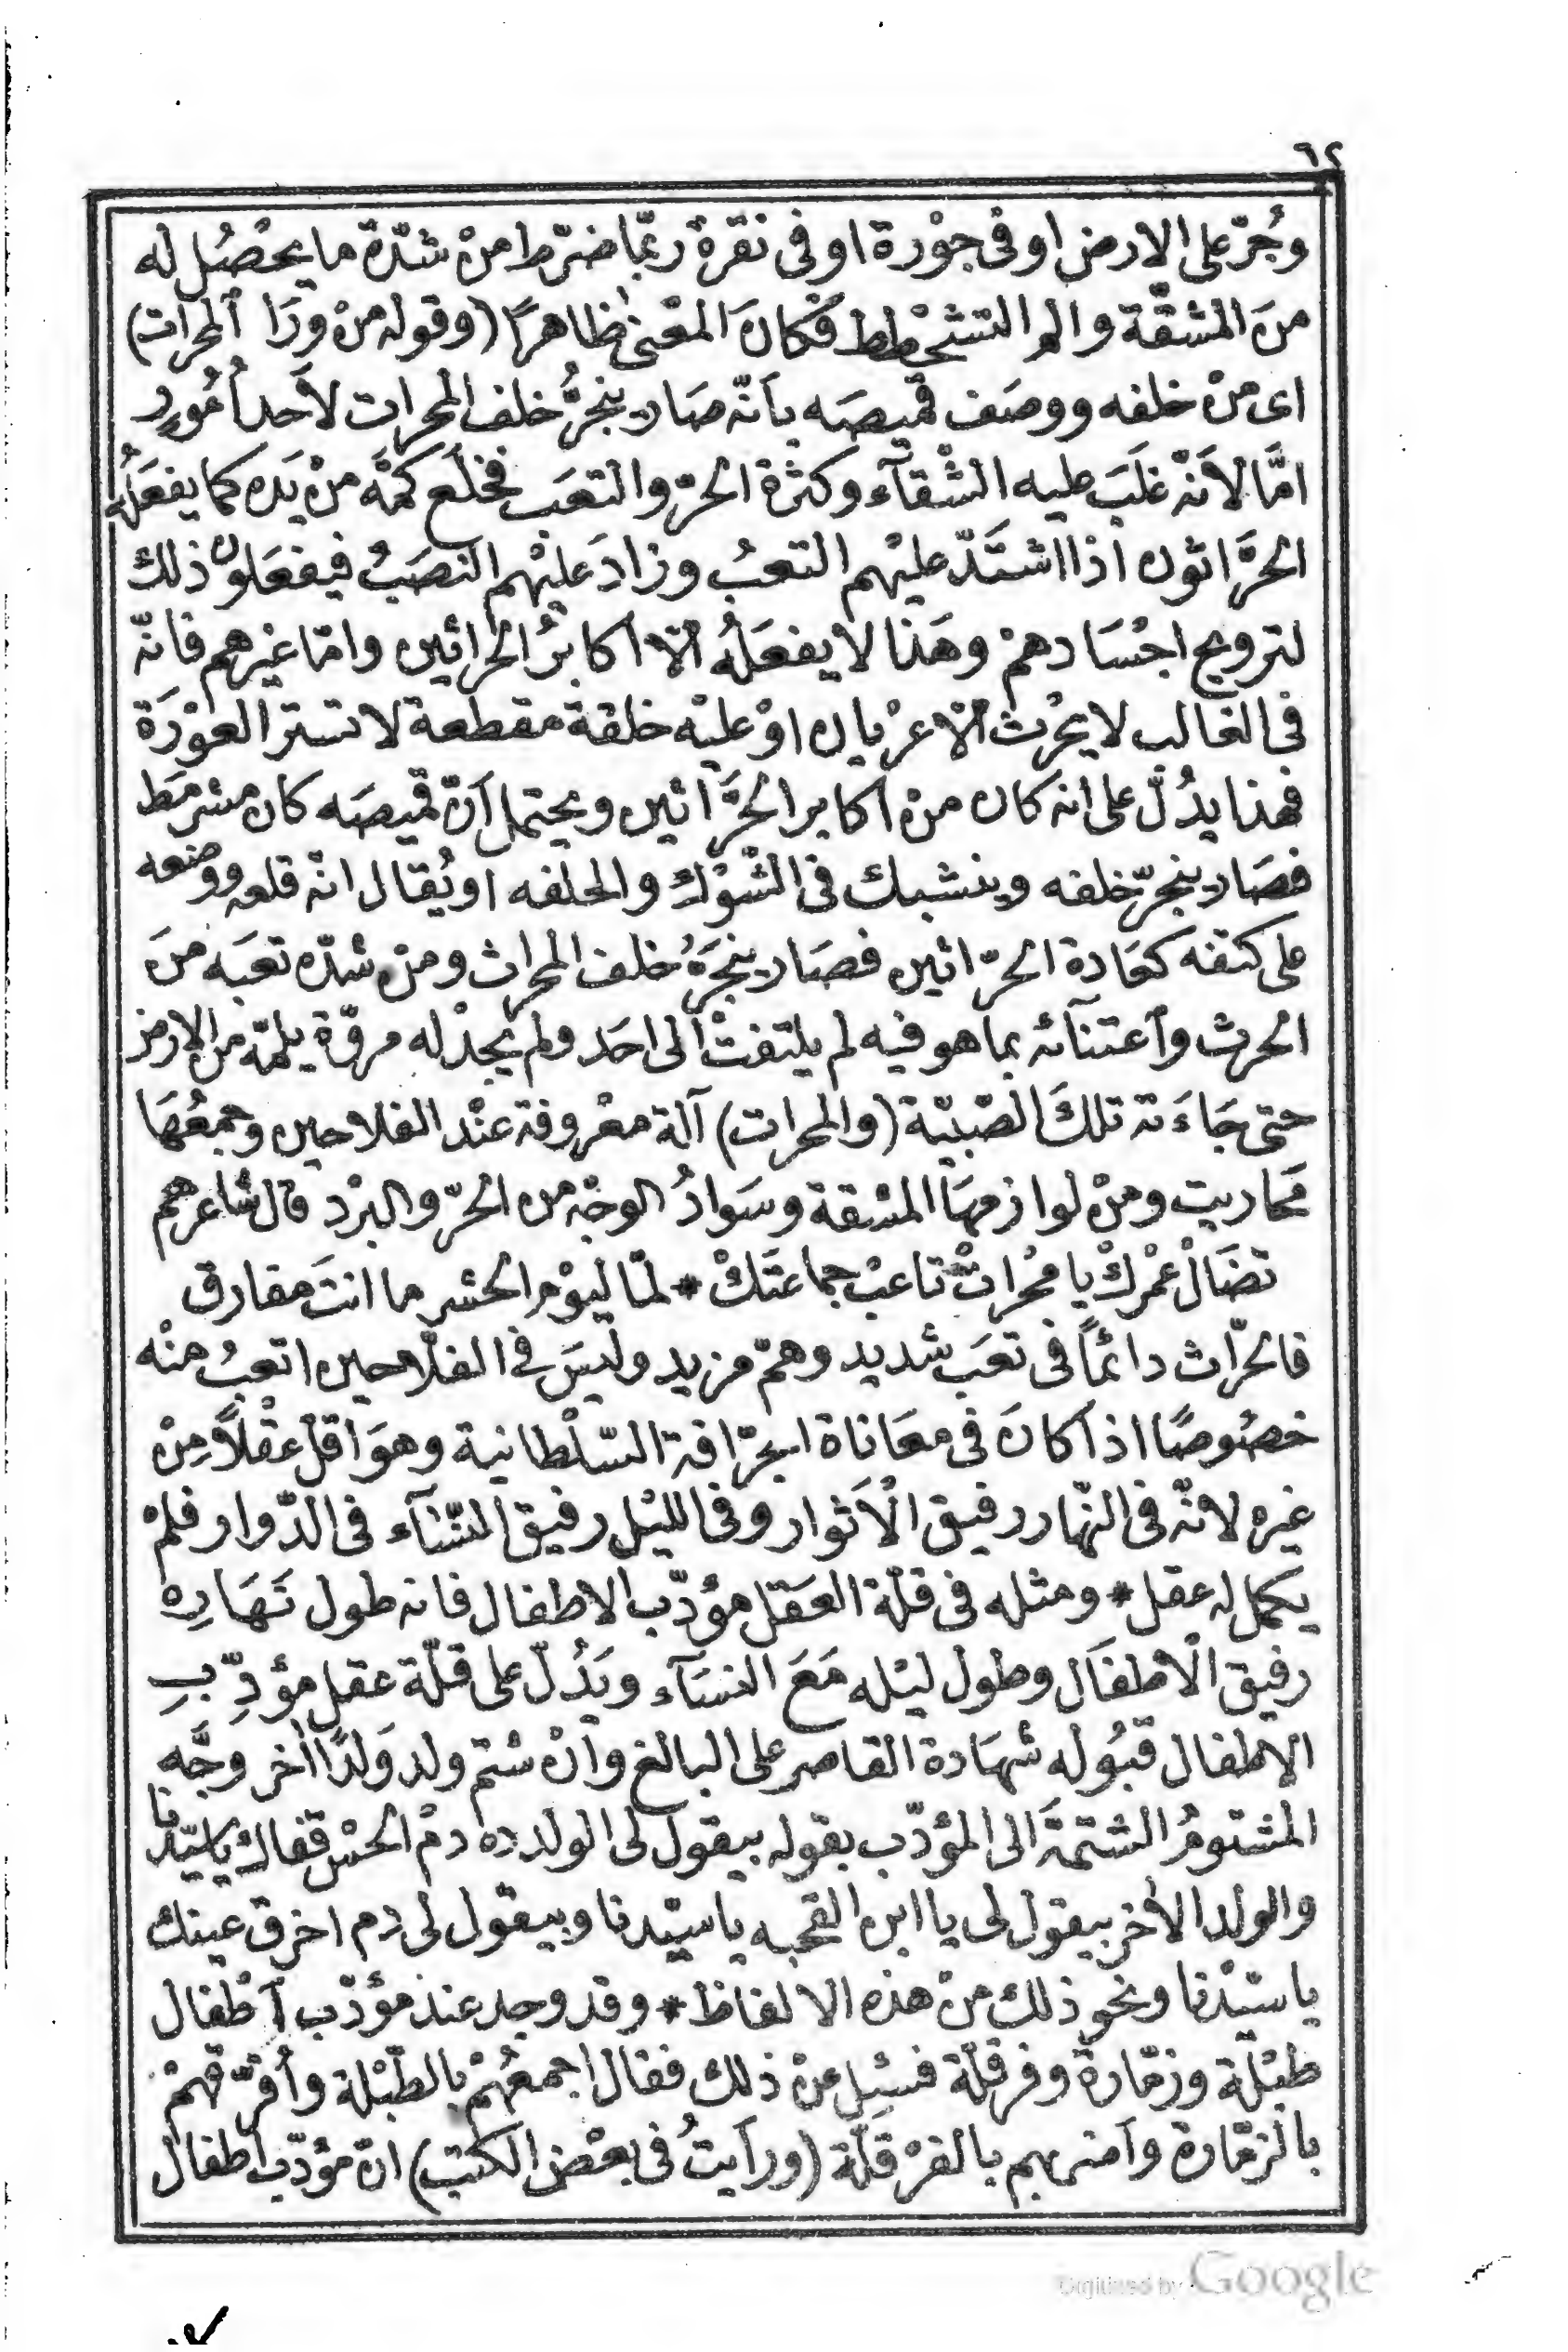 ٦٢
وجُرّ على الارض او فى جوْرة او فى نقرةْ ربّما ضرّط منْ شدّة ما يحْصُل له
منَ المشقّة والتشحْطط فكانَ المعْنىٰ ظاهرًا (وقوله منْ ورَا المحرات)
اى منْ خلفه ووصَف قميصَه بأنّه صَار ينجرُّ خلف المحرات لأحد أُمُورٍ
امَّا لاَنه غلَبَ عليه الشْقآء وكثرة الحرّ والتعَب فخلَع كمَّه منْ يَده كما يفعَلُه
الحرَّاثون اذا اشتَدّ عليْهم التعبُ وزادَ عليْهم النصَبُ فيفعَلونْ ذلك
لترويح اجْسَادهمْ وهَذا لا يفعَلُه الّا اكابرُ الحرائين وامّا غيْرهم فانّه
فى الغالب لا يحْرث الّا عرْيان اوْ عليْه خلقةْ مقطعة لا تستر العوْرَة
فهذا يدُلّ على انه كان منْ اكابر الحرَّاثين ويحتمل أنّ قميصَه كان مشرْمَط
فصَار ينجرّ خلفه وينشبك فى الشّوْك والحلفه او يُقال انّه قلعه ووضعه
على كتفه كعَادة الحرّاثين فصَار ينجرَُّ خلف المحراث ومنْ شدّه تعَبه منَ
الحرث واعتنآئه بما هو فيه لم يلتفتْ الى احَد ولم يجدْ له مروّة يلمّه من الارض
حتى جَاءَته تلكَ الصّبيّة (والمحرات) آلة معْروفة عنْد الفلاحين وجمعُهَا
محاريت ومنْ لوازمهَا المشقة وسَوادُ الوجْه من الحرّ والبرْد قال شاعرهم
تضَالْ عمْركْ يا محْراتْ تاعبْ جماعتَكْ * لمّا ليوْم الحشر ما انتَ مفارق
فالحرّاث دائماً فى تعَب شديد وهمّ مزيد وليسَ فى الفلّاحين اتعبُ منْه
خصُوصًا اذا كانَ فى معَاناة الجرّافة السّلْطانية وهوَ اقلّ عقْلاً مِنْ
غيره لانّه فى النّهار رفيق الْاَثوار وفى الليْل رفيق النّسَآء فى الدّوار فلمْ
يكمل له عقل * ومثله فى قلّة العَقل مؤدّب الاطفال فانه طول نَهَارِه
رفيق الْاطفَال وطول ليْله مَعَ النسَآء ويَدُلّ على قلّة عقل مؤدِّبِ
الاطفال قبُوله شهَادة القاصر على البالغ وأنْ شتم ولد وَلدًا أخر وجَّه
المشتومُ الشتمةَ الى المؤدّب بقوله بيقول لى الولد ده دمْ الحسْ قفاك يا سيّدنا
والولد الأخر بيقول لى يا ابن القحبه يا سيّدنا وبيقول لى دم اخرق عينك
يا سيّدنا ونحو ذلك منْ هذه الالفاظ * وقد وجد عند مؤدّب أطْفال
طبْلة وزمّارة وفرقلّة فسئِل عنْ ذلك فقال اجمعُهُمْ بالطّبْلة وأُفرّقهمْ
بالزمّارة وأضربهم بالفرْقلّة (ورأيتُ فى بعْض الكتب) انّ مؤدّب أطفال
Digitized by Google